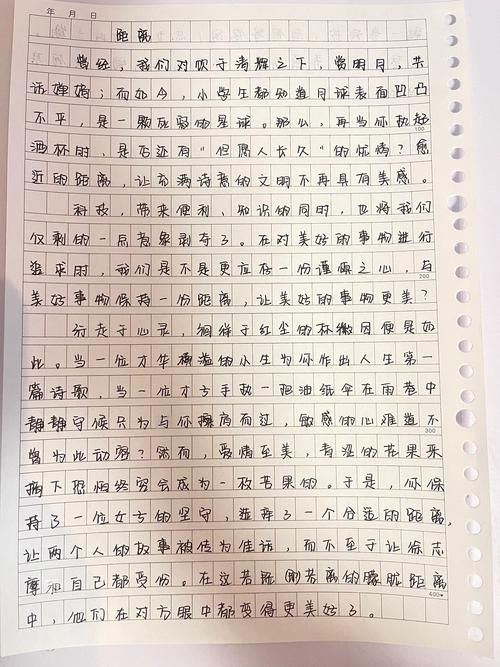 年 月 日
距离
曾经,我们对饮于清辉之下,赏明月,共
话婵娟;而如今,小学生都知道月球表面凹凸
不平,是一颗成熟的星球。那么,再当你执起
100
酒杯时,是否还有“但愿人长久”的忱情?愈
近的距离,让充满诗意的文明不再具有美感。
科技,带来便利、知识的同时,也将我们
仅剩的一点想象剥夺了。在对美好的事物进行
追求时,我们是不是更应存一份谨慎之心,与
200
美好事物保持一份距离,让美好的事物更美?
行走于心灵,徊徉于红尘的林徽因便是如
此。当一位才华横溢的小生为你作出人生第一
篇诗歌,当一位才子手执一把油纸伞在雨巷中
静静守候只为与你擦肩而过,敏感的心难道不
300
曾为此动容?然而,爱情至美,青涩的花果采
摘下恐怕终究会成为一枚苦果的。于是,你保
持了一位女子的坚守,选择了一个合适的距离,
让两个人的故事被传为佳话,而不至于让徐志
摩和自己都受伤。在这若即若离的朦胧距离
400
中,他们在对方眼中都变得更美好了。